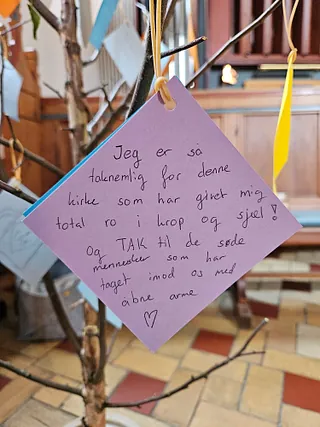 Jeg er så
taknemlig for denne
kirke som har givet mig
total ro i krop og sjæl!
Og TAK til de søde
mennesker som har
taget imod os med
åbne arme
♡